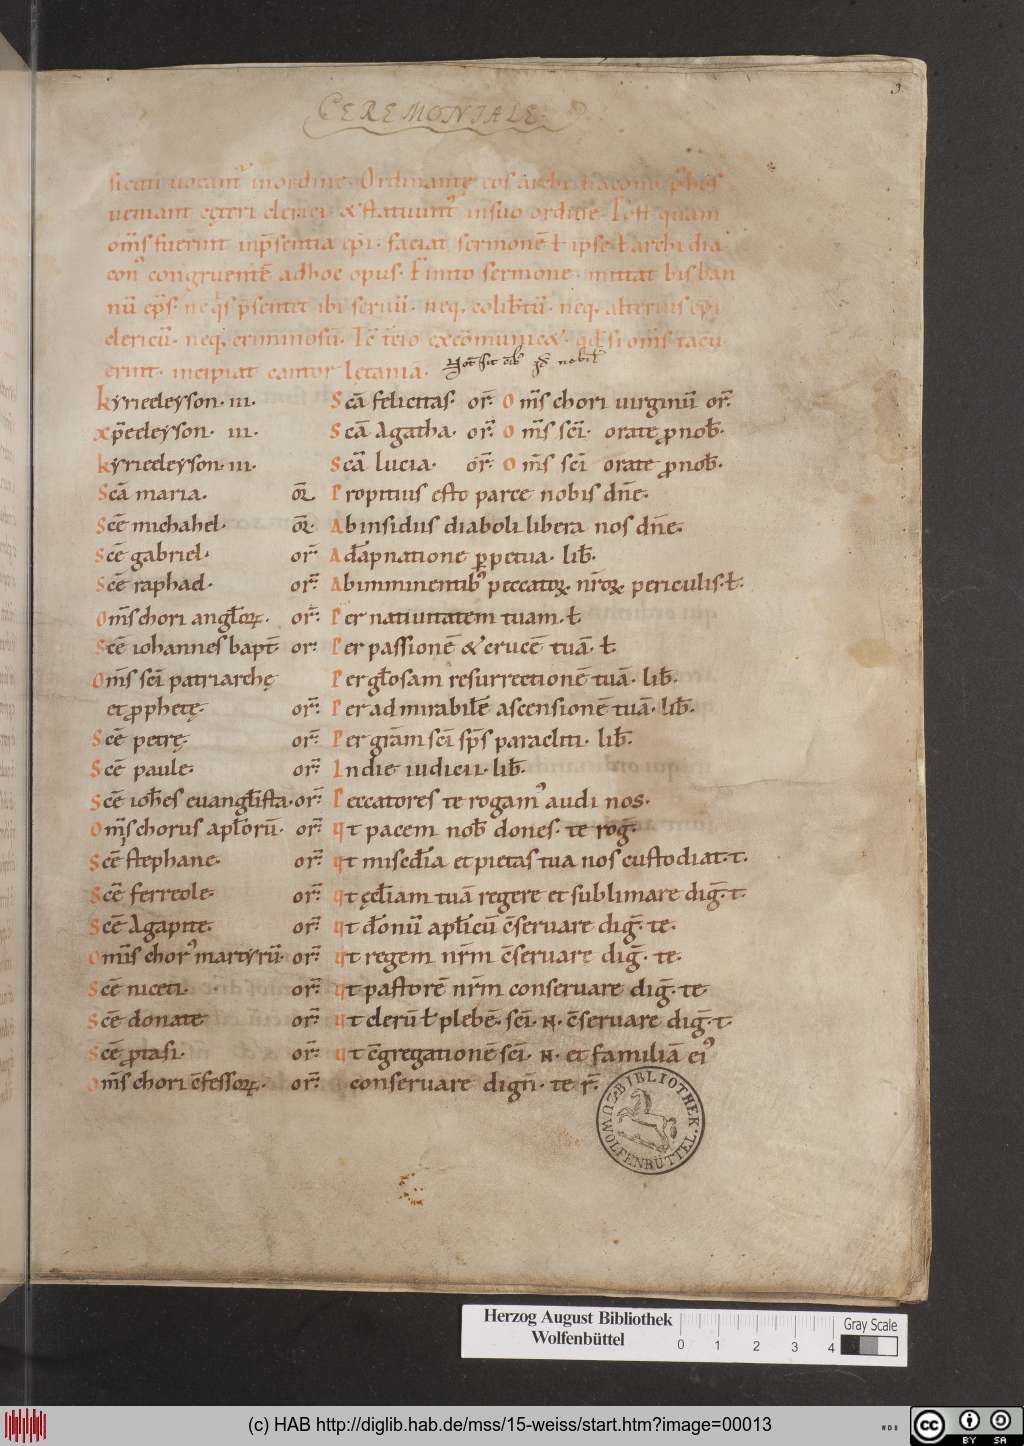 3
CEREMONIALE
ueniant cęteri clerici. & statuunt᷒ insuo ordine. Postquam
om̅s fuerint inp̅sentia ep̅i. faciat sermone̅ ł ipse ł archidia
con᷒ congruente̅ adhoc opus. Finito sermone. mittat bisban
nu̅ ep̅s. neq̅s p̅sentet ibi seruu̅. neq. colib̅tu̅. neq. alterius ep̅i
clericu̅. neq. criminosu̅. excom̅unic&. qd̅ si om̅s tacu
erint. incipiat cantor letania̅.
kyrieeleyson. III. Sca̅ felicitas. or̅. Om̅s chori uirginu̅ or̅.
xp̅eeleyson. III. Sca̅ Agatha. or̅. Om̅s sci̅. orate ꝓnob̅.
kyrieeleyson. III. Sca̅ lucia. or̅. Om̅s sci̅ orate ꝓnob̅.
Sca̅ maria. or̅. Propitius esto parce nobis dn̅e.
Sce̅ michahel. or̅. Abinsidus diaboli libera nos dn̅e.
Sce̅ gabriel. or̅. Ada̅pnatione ꝑpetua. lib̅.
Sce̅ raphael. or̅. Abimminentib᷒ peccatoꝝ nr̅oꝝ periculis. ł.
Om̅s chori angl̅oꝝ. or̅. Per natiuitatem tuam. ł
Sce̅ iohannes bapt̅. or̅. Per passione̅ & cruce̅ tua̅. ł.
Om̅s sci̅ patriarchę Per gl̅osam resurrectione̅ tua̅. lib̅.
et ꝓphetę. or̅. Per admirabile̅ ascensione̅ tua̅. lib̅.
Sce̅ petrę. or̅. Per gra̅m sci̅ sp̅s paracliti. lib̅.
Sce̅ paule. or̅. In die iudicii. lib̅.
Sce̅ ioh̅es euangl̅ista. or̅. Peccatores te rogam᷒ audi nos.
Om̅s chorus apl̅oru̅. or̅. Ut pacem nob̅ dones. te rog̅.
Sce̅ stephane. or̅. Ut miscd̅ia et pietas tua nos custodiat. t.
Sce̅ ferreole. or̅. Ut ęcl̅iam tua̅ regere et sublimare dig̅. t.
Sce̅ Agapite. or̅. Ut do̅nu̅ apl̅icu̅ c̅seruare dig̅. te.
Om̅is chor᷒ martyru̅. or̅. Ut regem nr̅m c̅seruare dig̅. te.
Sce̅ niceti. or̅. Ut pastore̅ nr̅m conseruare dig̅. te.
Sce̅ donate or̅. Ut cleru̅ ł plebe̅. sci̅. N. c̅seruare dig̅. t.
Sce̅ ꝓtasi. or̅. Ut c̅gregatione̅ sci̅. N. et familia̅ ei᷒
Om̅s chori c̅fessoꝝ. or̅. conseruare dign̅. te r̅.
BIBLIOTHEK
ZU WOLFENBÜTTEL.
Herzog August Bibliothek
Wolfenbüttel
0 1 2 3 4
Gray Scale
(c) HAB http://diglib.hab.de/mss/15-weiss/start.htm?image=00013
WDB
cc BY SA